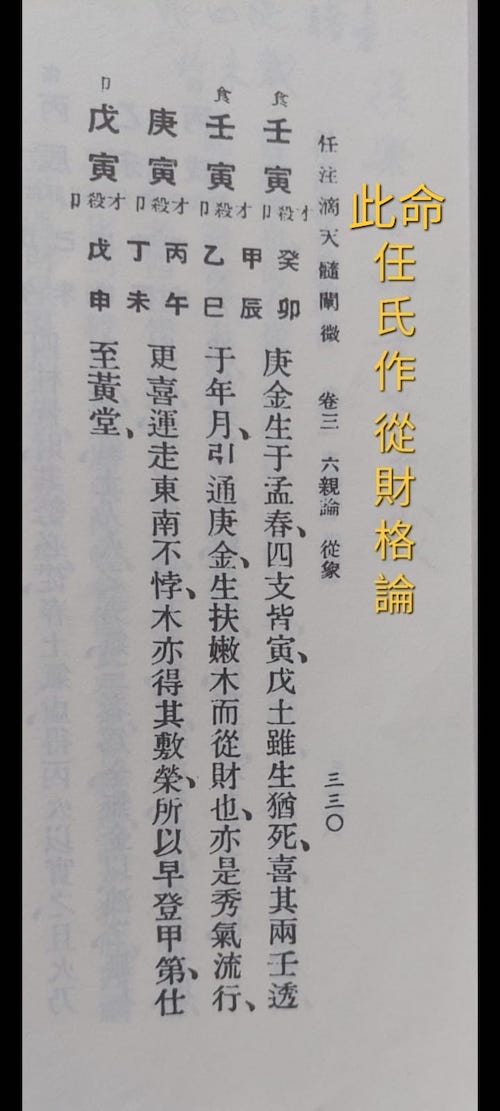 此命
任氏作從財格論
任注滴天髓闡微 卷三 六親論 從象 三三〇
食 壬寅 才殺卩
食 壬寅 才殺卩
庚寅 才殺卩
卩 戊寅 才殺卩
癸卯
甲辰
乙巳
丙午
丁未
戊申
庚金生于孟春、四支皆寅、戊土雖生猶死、喜其兩壬透
于年月、引通庚金、生扶嫩木而從財也、亦是秀氣流行、
更喜運走東南不悖、木亦得其敷榮、所以早登甲第、仕
至黃堂、